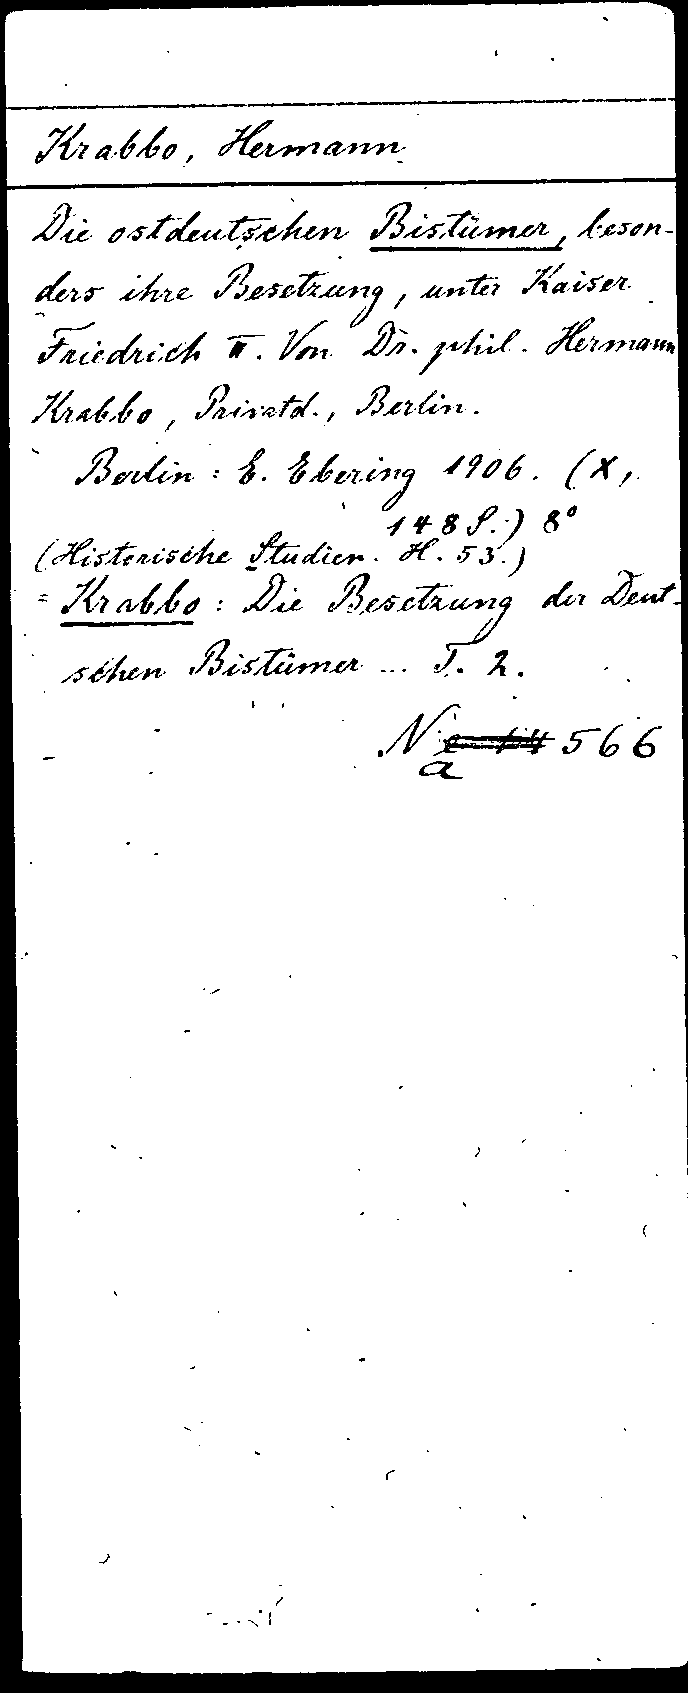 Krabbo, Hermann
Die ostdeutschen Bistümer, beson-
ders ihre Besetzung, unter Kaiser
Friedrich II. Von Dr. phil. Hermann
Krabbo, Privatd., Berlin.
Berlin: E. Ebering 1906. (X,
148 S.) 8°
(Historische Studien. H. 53.)
= Krabbo: Die Besetzung der Deut-
schen Bistümer ... T. 2.
N 566
a